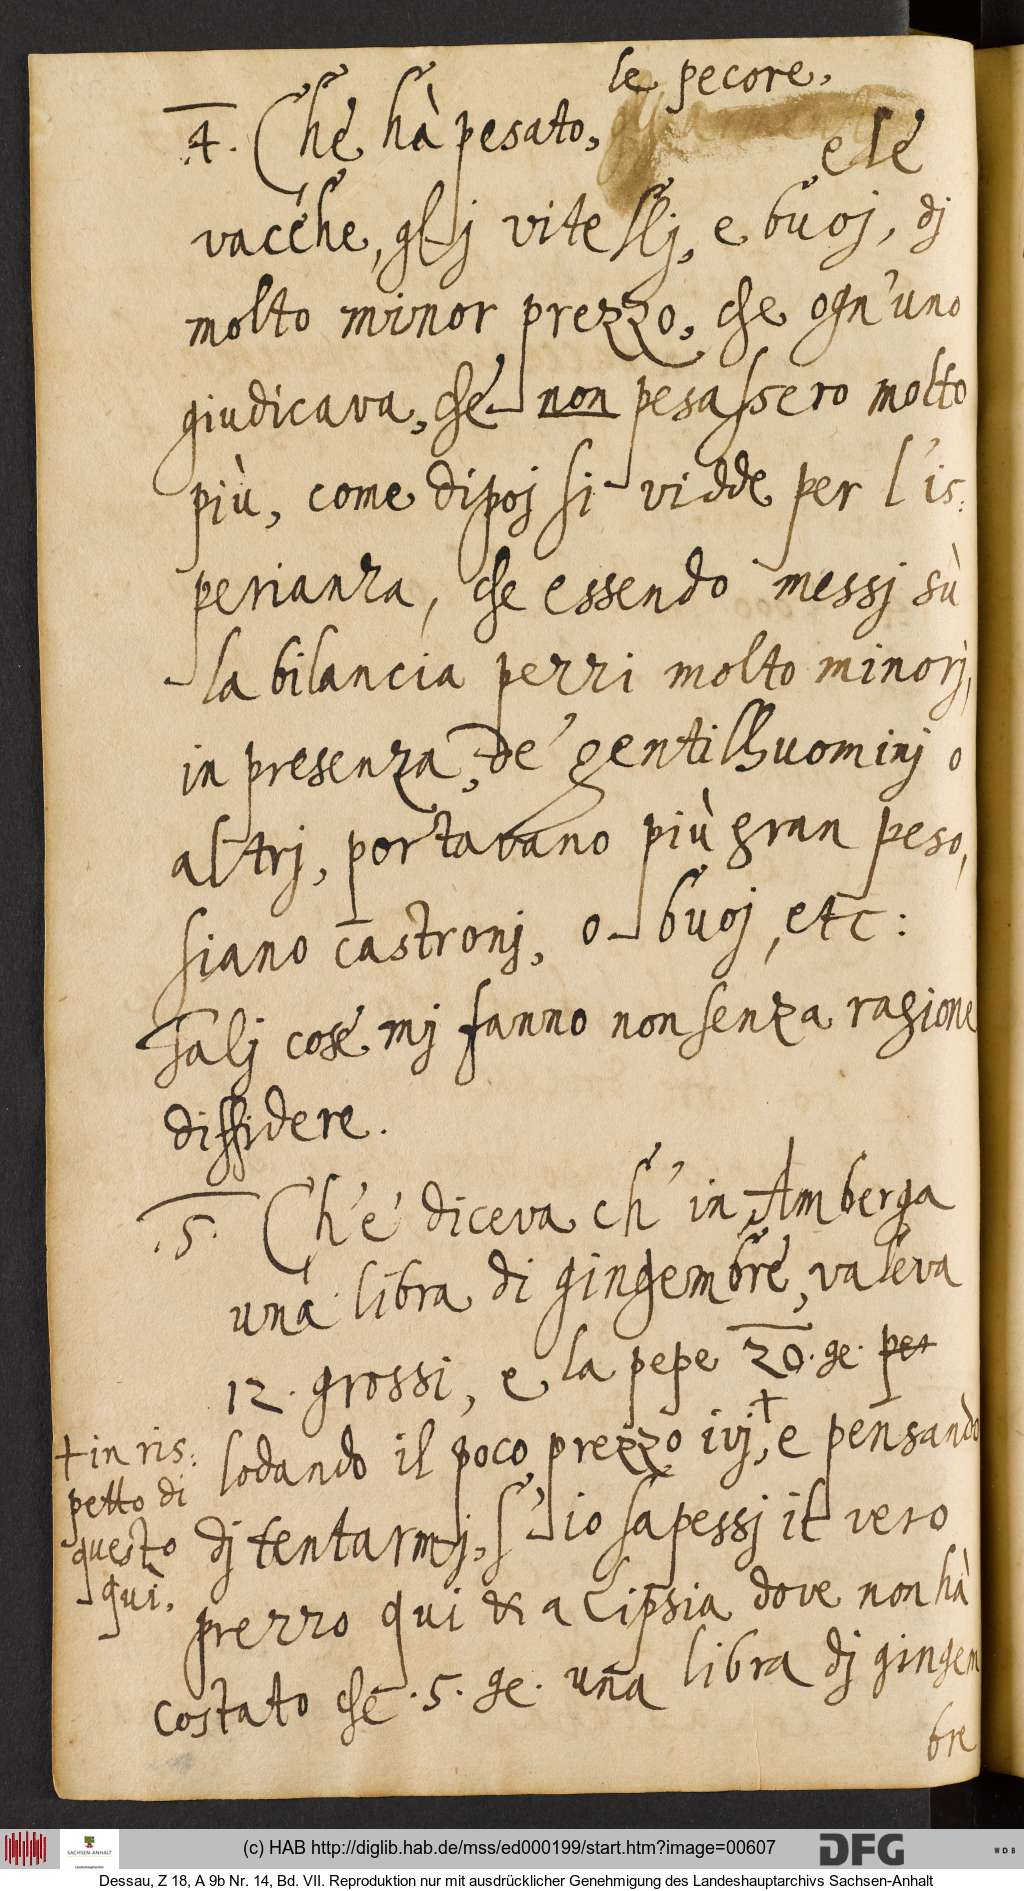 le pecore,
.4. Che hà pesato,
e le
vacche, glj vitellj, e buoj, dj
molto minor prezzo, che ogn'uno
giudicava, che non pesassero molto
più, come dipoj si vidde per l'is:
perianza, che essendo messj sù
la bilancia pezzi molto minorj,
in presenza, de' gentilhuominj o
altrj, portavano più gran peso,
siano castronj, o buoj, etc:
Talj cose mj fanno non senza ragione
diffidere.
.5. Ch'e' diceva ch' in Amberga
una libra di gingembre, valeva
12. grossi, e la pepe 20. ge. per
lodando il poco prezzo ivj,+ e pensando
+ in ris:
petto di
questo
quì.
dj tentarmj, s' io sapessj il vero
prezzo qui & a Lipsia dove non hà
costato che .5. ge. una libra dj gingem
bre
(c) HAB http://diglib.hab.de/mss/ed000199/start.htm?image=00607
SACHSEN-ANHALT
DFG
WDB
Dessau, Z 18, A 9b Nr. 14, Bd. VII. Reproduktion nur mit ausdrücklicher Genehmigung des Landeshauptarchivs Sachsen-Anhalt